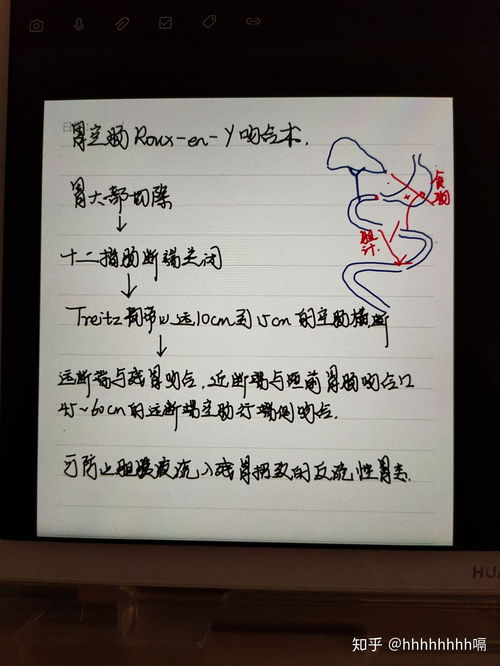 胃空肠Roux-en-Y吻合术.
胃大部切除
↓
十二指肠断端关闭
↓
Treitz韧带以远10cm到15cm的空肠横断
↓
远断端与残胃吻合,近断端与距前胃肠吻合口
45~60cm的远断端空肠行端侧吻合.
可防止胆胰液流入残胃招致的反流性胃炎.
食物
胆汁
HUA
知乎 @hhhhhhhh嗝